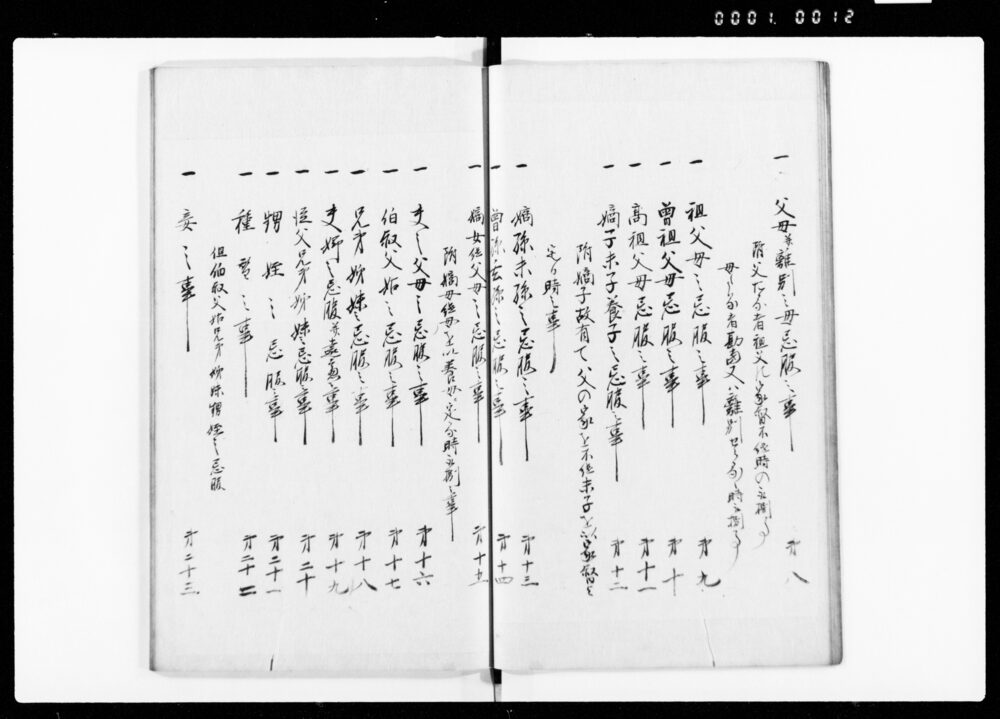 0001. 0012
一 父母並離別之母忌服之事 第八
附父たる者祖父に家督不継時の
母たる者勘当又ハ離別せらるゝ時
一 祖父母之忌服之事 第九
一 曽祖父母忌服之事 第十
一 高祖父母忌服之事 第十一
一 嫡子末子養子之忌服之事 第十二
附嫡子故有て父の家を不継末子を以家督を
定る時之事
一 嫡孫末孫之忌服之事 第十三
一 曽孫玄孫之忌服之事 第十四
一 嫡女継父母之忌服之事 第十五
附嫡母継母を以養母に定る時之事
一 夫之父母之忌服之事 第十六
一 伯叔父姑之忌服之事 第十七
一 兄弟姉妹之忌服之事 第十八
一 夫婦之忌服並妻妾之事 第十九
一 従父兄弟姉妹之忌服之事 第二十
一 甥姪之忌服之事 第二十一
一 種替之事 第二十二
但伯叔父姑兄弟姉妹甥姪之忌服
一 妾之事 第二十三